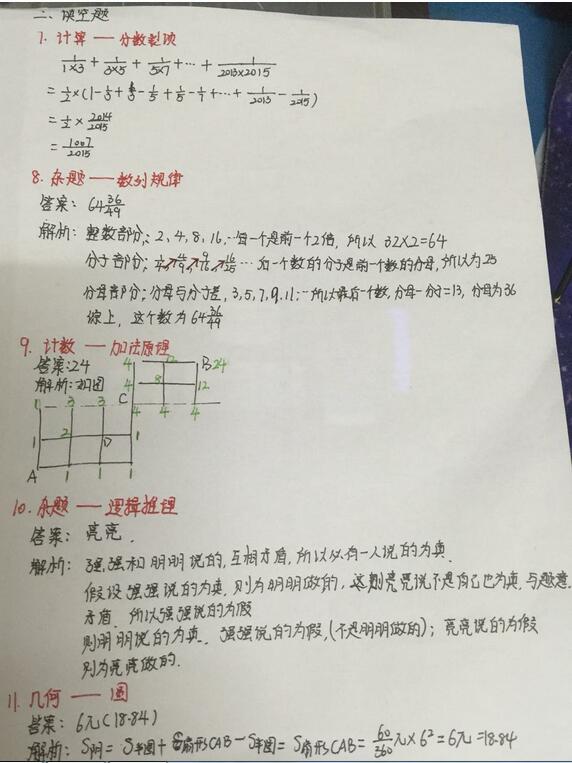 二、填空题
7. 计算——分数裂项
1/1×3 + 1/3×5 + 1/5×7 + … + 1/2013×2015
= 1/2 × (1 - 1/3 + 1/3 - 1/5 + 1/5 - 1/7 + … + 1/2013 - 1/2015)
= 1/2 × 2014/2015
= 1007/2015
8. 杂题——数列规律
答案: 64 36/49
解析: 整数部分: 2, 4, 8, 16, …每一个是前一个2倍, 所以 32×2=64
分子部分: 1/4, 4/9, 9/16, 16/25 … 后一个数的分子是前一个数的分母, 所以为25
分母部分: 分母与分子差, 3, 5, 7, 9, 11, …所以最后一个数, 分母-分子=13, 分母为36
综上, 这个数为64 36/49
9. 计数——加法原理
答案: 24
解析: 如图
4 12 B 24
4 8 12
C 4 4 4
1 3 3
1 2 D 1
A 1 1 1
10. 杂题——逻辑推理
答案: 亮亮.
解析: 强强和明明说的, 互相矛盾, 所以必有一人说的为真.
假设强强说的为真, 则为明明做的, 这则亮亮说不是自己也为真, 与题意
矛盾. 所以强强说的为假
则明明说的为真. 强强说的为假, (不是明明做的); 亮亮说的为假
则为亮亮做的.
11. 几何——圆
答案: 6π(18.84)
解析: S阴 = S半圆 + S扇形CAB - S半圆 = S扇形CAB = 60/360 π × 6² = 6π = 18.84